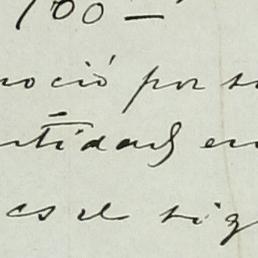 100 —
noció por s
ntidad en
es el sig